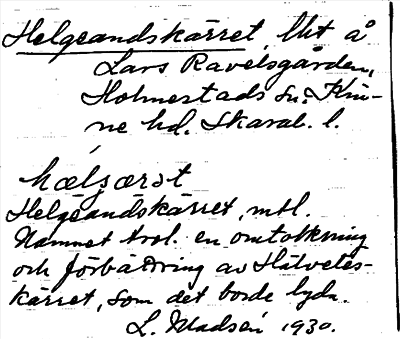 Helgeandskärret, lht å
Lars Ravelsgården,
Holmestads sn. Kin-
ne hd. Skarab. l.
hælsæræt
Helgeandskärret, mtl.
Namnet trol. en omtolkning
och förbättring av Hälvetes-
kärret, som det borde lyda.
L. Madsén 1930.